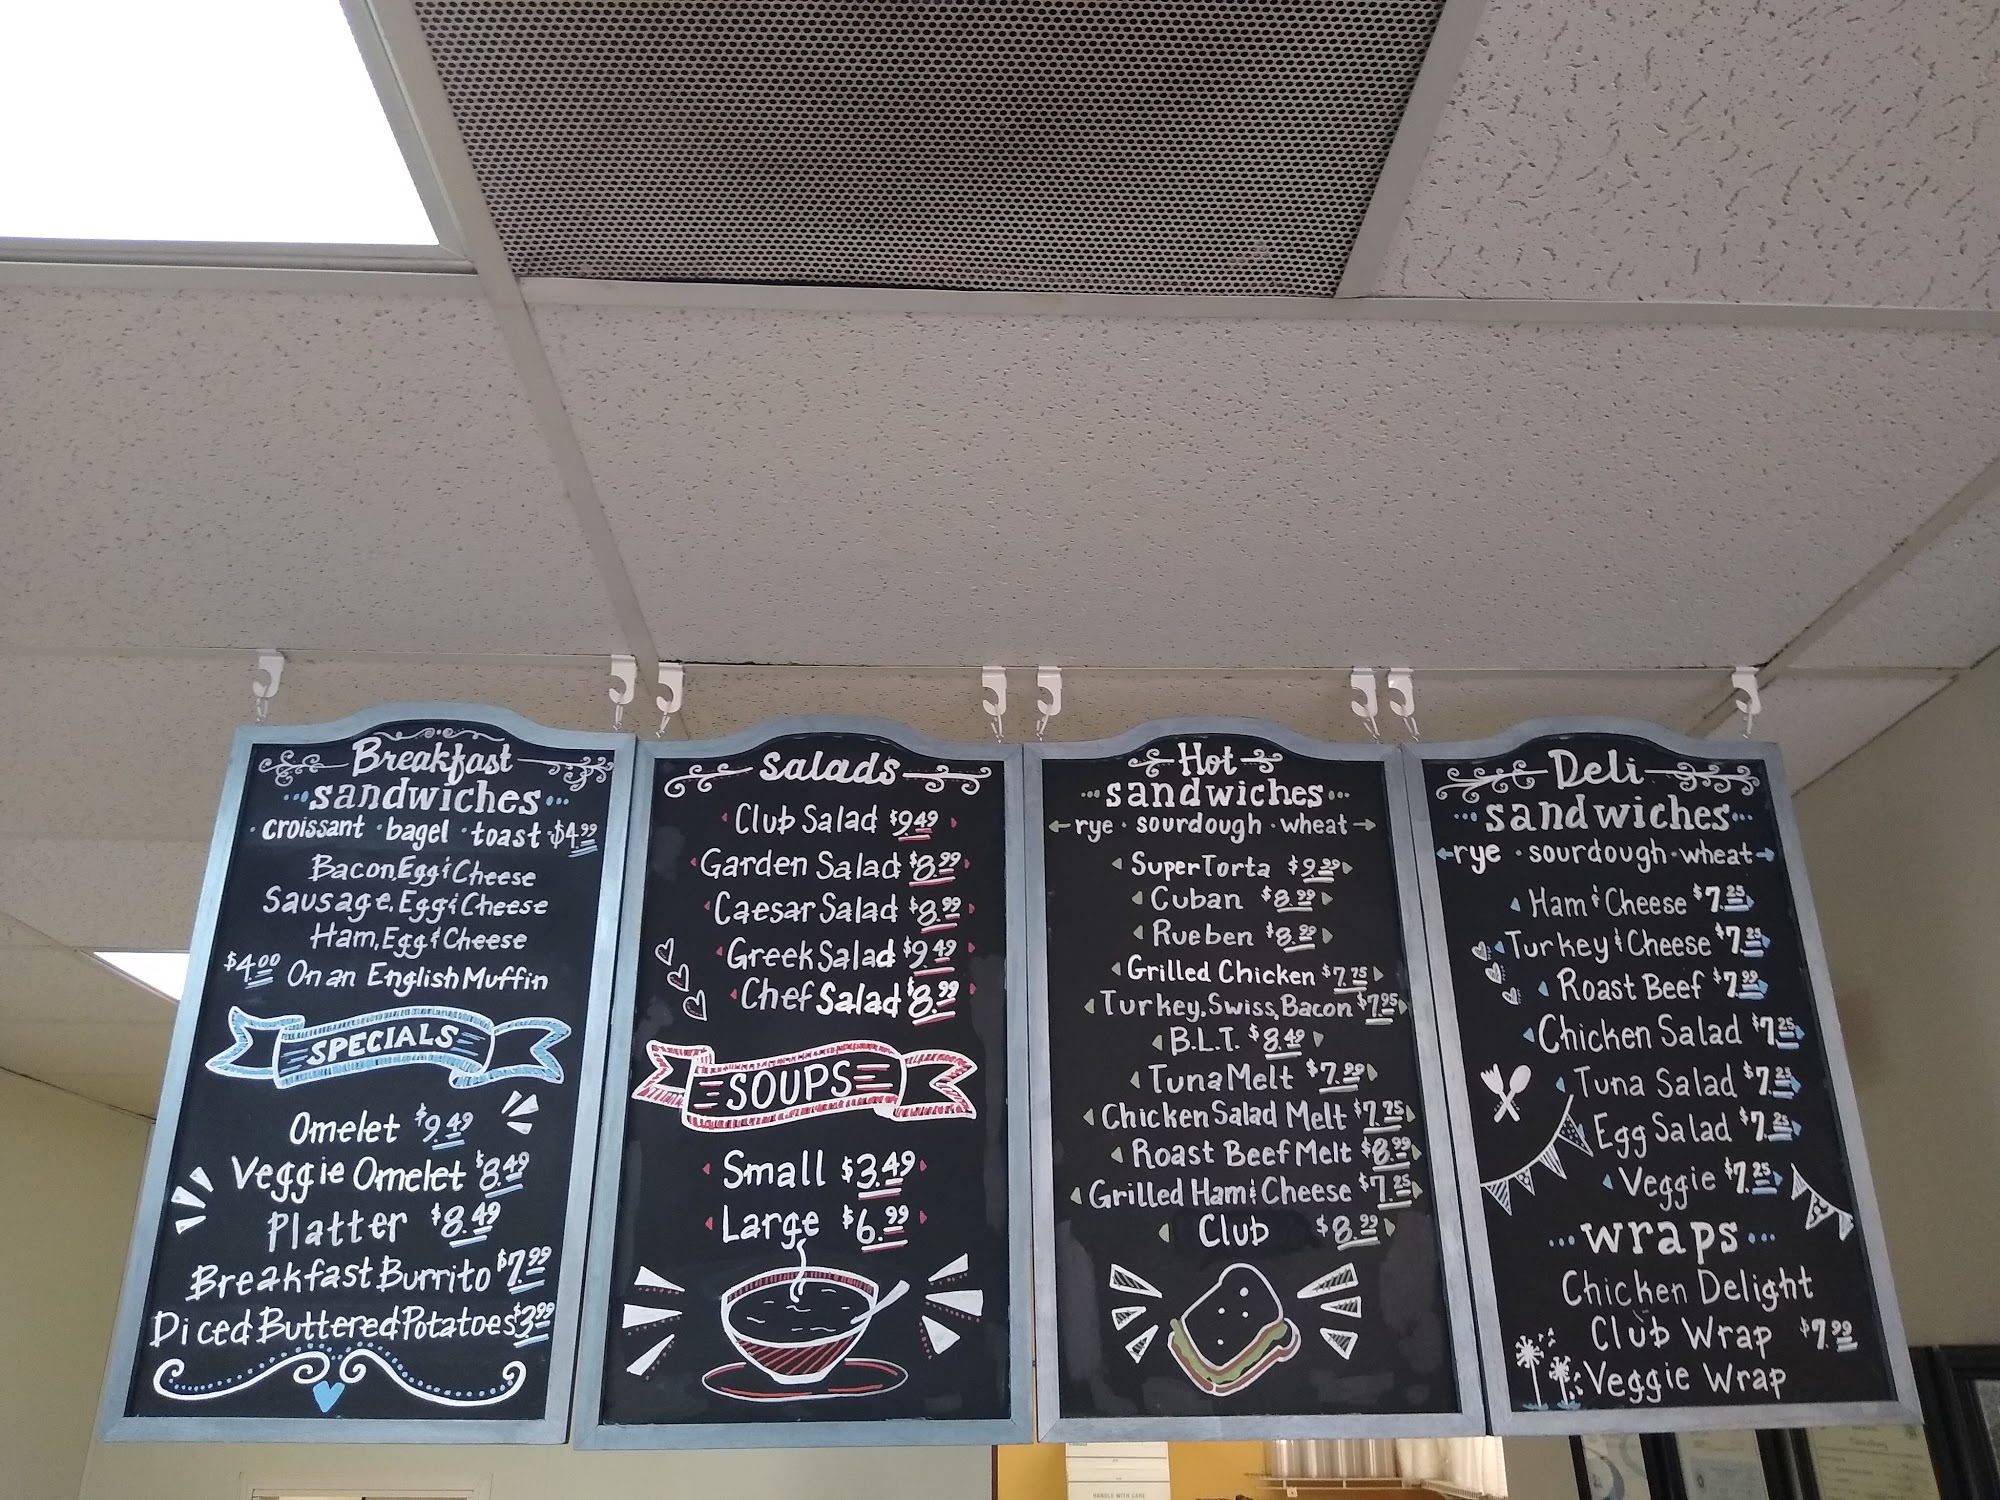 Breakfast
sandwiches
croissant · bagel · toast · $4.99
Bacon, Egg & Cheese
Sausage, Egg & Cheese
Ham, Egg & Cheese
$4.00 On an English Muffin
SPECIALS
Omelet $9.49
Veggie Omelet $8.49
Platter $8.49
Breakfast Burrito $7.99
Diced Buttered Potatoes $3.99
Salads
Club Salad $9.49
Garden Salad $8.99
Caesar Salad $8.99
Greek Salad $9.49
Chef Salad $8.99
SOUPS
Small $3.49
Large $6.99
Hot
sandwiches
rye · sourdough · wheat
Super Torta $9.99
Cuban $8.99
Rueben $8.99
Grilled Chicken $7.75
Turkey, Swiss, Bacon $7.95
B.L.T. $8.49
Tuna Melt $7.99
Chicken Salad Melt $7.75
Roast Beef Melt $8.99
Grilled Ham & Cheese $7.25
Club $8.99
Deli
sandwiches
rye · sourdough · wheat
Ham & Cheese $7.25
Turkey & Cheese $7.25
Roast Beef $7.99
Chicken Salad $7.25
Tuna Salad $7.25
Egg Salad $7.25
Veggie $7.25
wraps
Chicken Delight
Club Wrap $7.99
Veggie Wrap
HANDLE WITH CARE